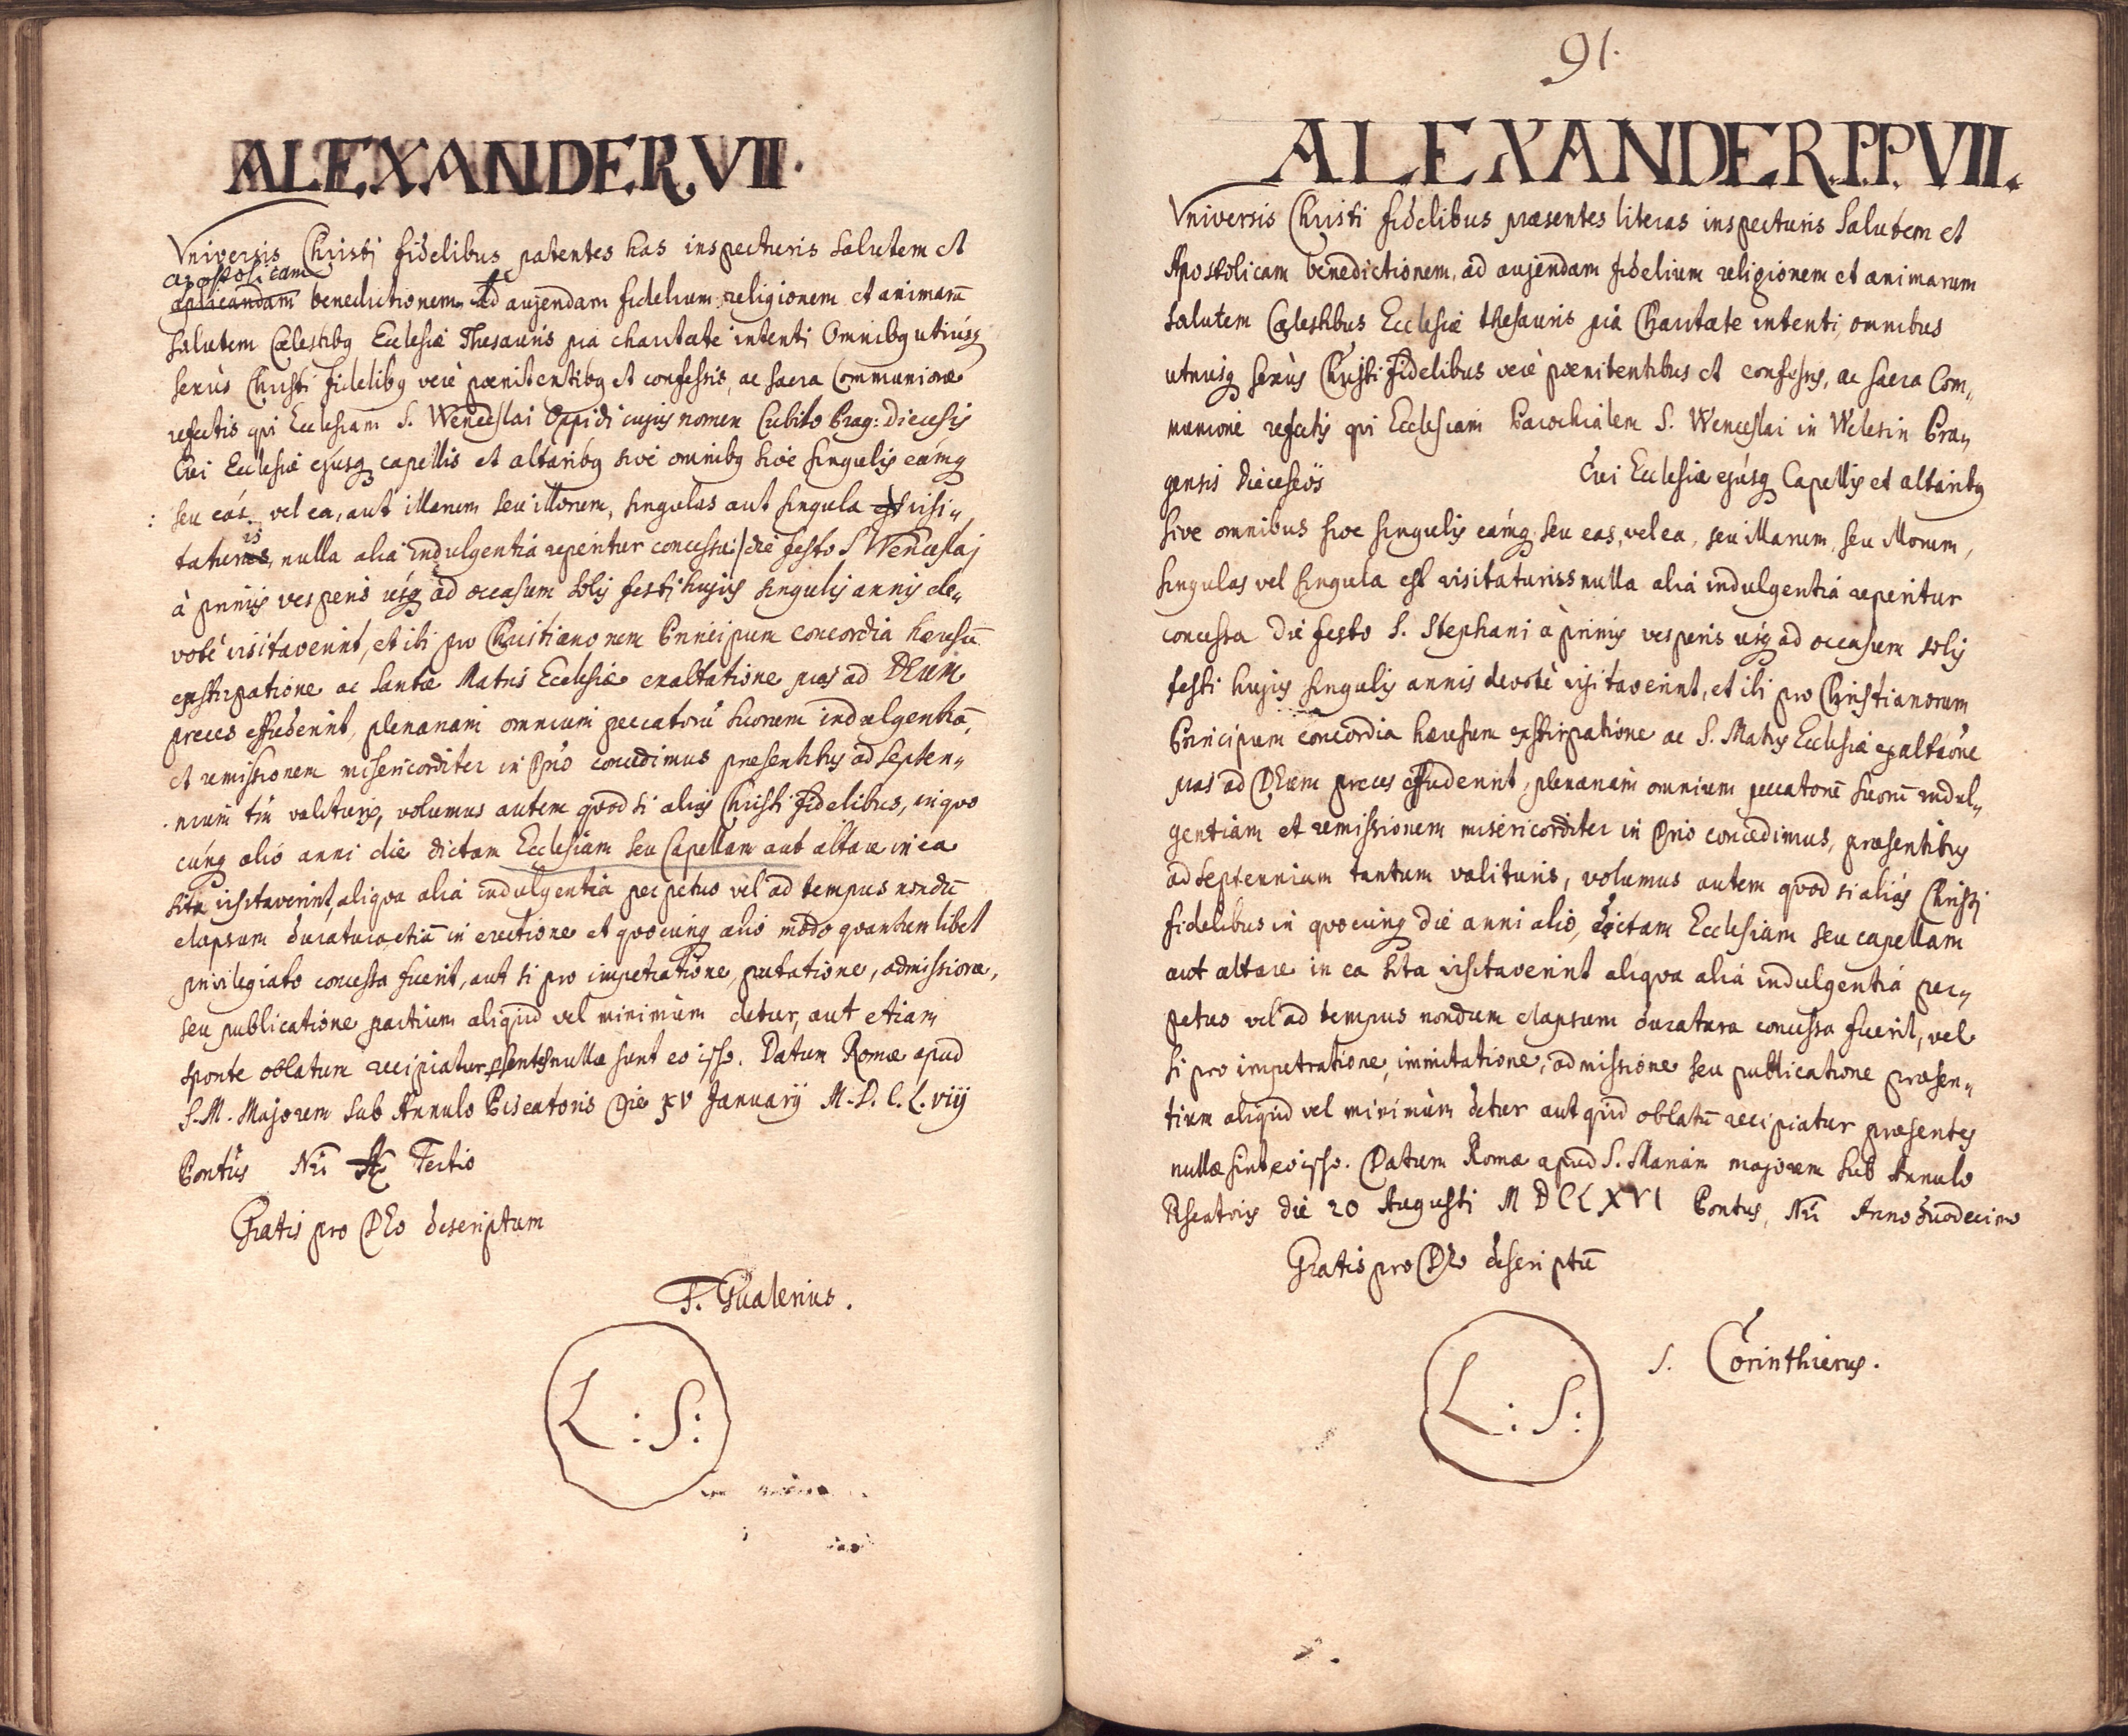 ALEXANDER. VII.
Universis Christi fidelibus patentes has inspecturis salutem et
apostolicam
aplacandam benedictionem. Ad augendam fidelium religionem et animarū
salutem Cælestibq Ecclesiæ Thesauris pia charitate intenti Omnibq utriúsq
sexûs Christi fidelibq verè pænitentibq et confessis, ac sacra Communione
refectis qvi Ecclesiam S. Wenceslai Oppidi cujus nomen Cubito Prag: Diecesis
Cui Ecclesiæ ejúsq capellis et altaribq sive omnibq sive singulis eámq
seu eas vel ea, aut illarum seu illorum, singulas aut singula visi„
taturis, nulla alia indulgentiá reperitur concessa / die festo S Wenceslaj
à primis vesperis úsq ad occasum solis festi hujus singulis annis de„
votè visitaverint, et ibi pro Christiano nem Principum concordia hæresū
exstirpatione ac Santæ Matris Ecclesiæ exaltatione pias ad DEum
preces effuderint, plenariam omnium peccatorū suorum indulgentiā,
et remissionem misericorditer in Dnō concedimus presentibus ad septen„
nium tm̄ valituris, volumus autem qvod si aliás Christi fidelibus, in qvo
cúnq alió anni die dictam Ecclesiam seu Capellam aut altare in ea
sita visitaverint, aliqva alia indulgentia perpetuo vel ad tempus nondū
elapsum duratura etiā in erectione et qvocúnq alió modo qvantumlibet
privilegiato concessa fuerit, aut si pro impetratione, putatione, admissione,
seu publicatione partium aliqvid vel minimùm detur, aut etiam
sponte oblatum recipiatur, psentes nullæ sunt eo ipso. Datum Romæ apud
S. M. Majorem sub Annulo Piscatoris Die XV Januarij M. D. C. L. viij
Pontūs Nri Tertio
Gratis pro DEo descriptum
F. Gualerius.
L : S :
91.
ALEXANDER. P.P. VII.
Universis Christi fidelibus præsentes literas inspecturis salutem et
Apostolicam benedictionem, ad augendam fidelium religionem et animarum
salutem Cælestibus Ecclesiæ thesauris piâ Charitate intenti, omnibus
utriúsq sexûs Christi Fidelibus verè pænitentibus et confessis, ac sacra Com„
munione refectis qvi Ecclesiam Parochialem S. Wenceslai in Welesin Pra„
gensis Dieceseös Cui Ecclesiæ ejúsq Capellis et altaribq
sive omnibus sive singulis eámq seu eas, vel ea, seu illarum, seu illorum,
singulas vel singula est visitaturiss nulla aliá indulgentiá reperitur
concessa die festo S. Stephani à primis vesperis úsq ad occasum solis
festi hujus singulis annis devotè visitaverint, et ibi pro Christianorum
Principum concordia hæresum exstirpatione ac S. Matris Ecclesiæ exaltaōne
pias ad DEum preces effuderint, plenariam omnium peccatorū suorū indul„
gentiam et remissionem misericorditer in Dnō concedimus, præsentibus
ad septennium tantum valituris, volumus autem qvod si aliás Christi
fidelibus in qvocúnq die anni alió, dictam Ecclesiam seu capellam
aut altare in ea sita visitaverint aliqva aliá indulgentiá per„
petuo vel ad tempus nondum elapsum duratura concessa fuerit, vel
si pro impetratione, imitatione, admissione seu publicatione præsen„
tium aliqvid vel minimùm detur aut qvid oblatū recipiatur præsentes
nullæ sint eo ipso. Datum Romæ apud S. Mariam majorem sub Annulo
Piscatoris die 20 Augusti M DCLXVI Pontus, Nri Anno duodecimo
Gratis pro DEo descriptū
S. Corinthierus.
L : S :